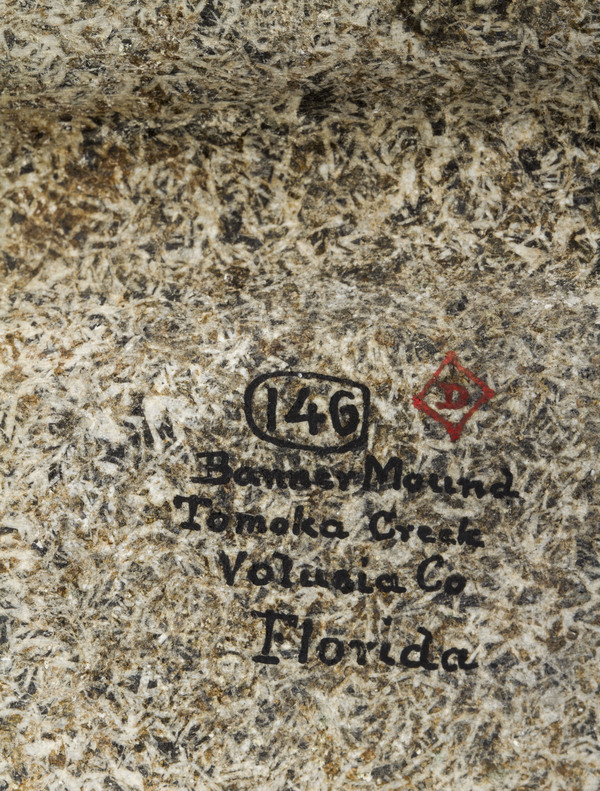 146 D
Banner Mound
Tomoka Creek
Volusia Co
Florida